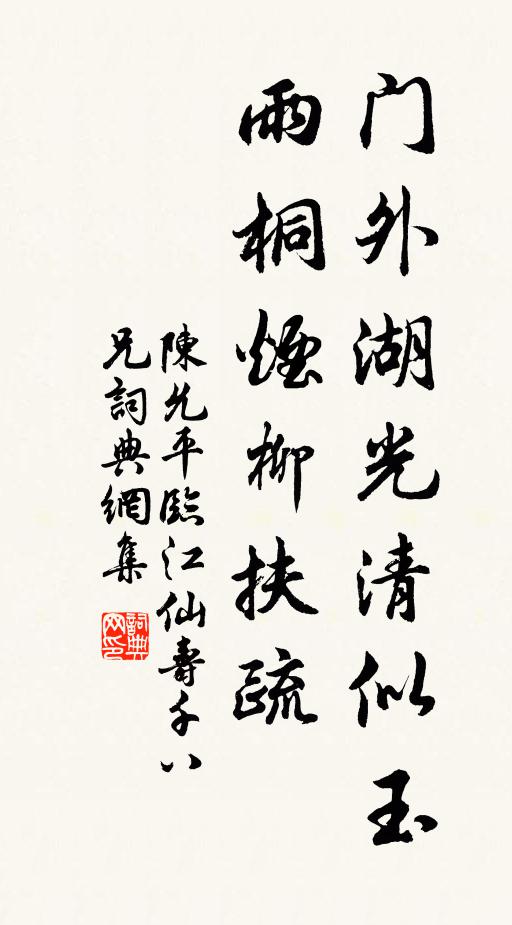 门外湖光清似玉
雨桐煙柳扶疏
陳允平臨江仙壽千八
兄詞典網集
詞典网印